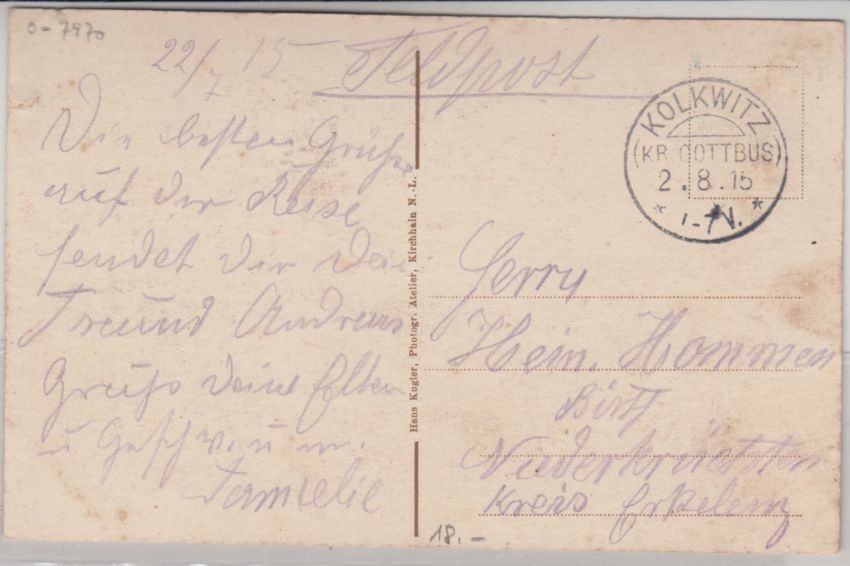 0-7970
22/7 15 Feldpost
Die besten Grüße
auf der Reise
sendet dir dein
Freund Andreas
Gruß deine Eltern
u Geschw. u m.
Familie
Hans Kugler, Photogr. Atelier, Kirchhain N.-L.
KOLKWITZ
(KR. COTTBUS)
2.8.15
* 1-7 V. *
Herrn
Hein. Hommen
Niederkrüchten
Kreis Erkelenz
18.-